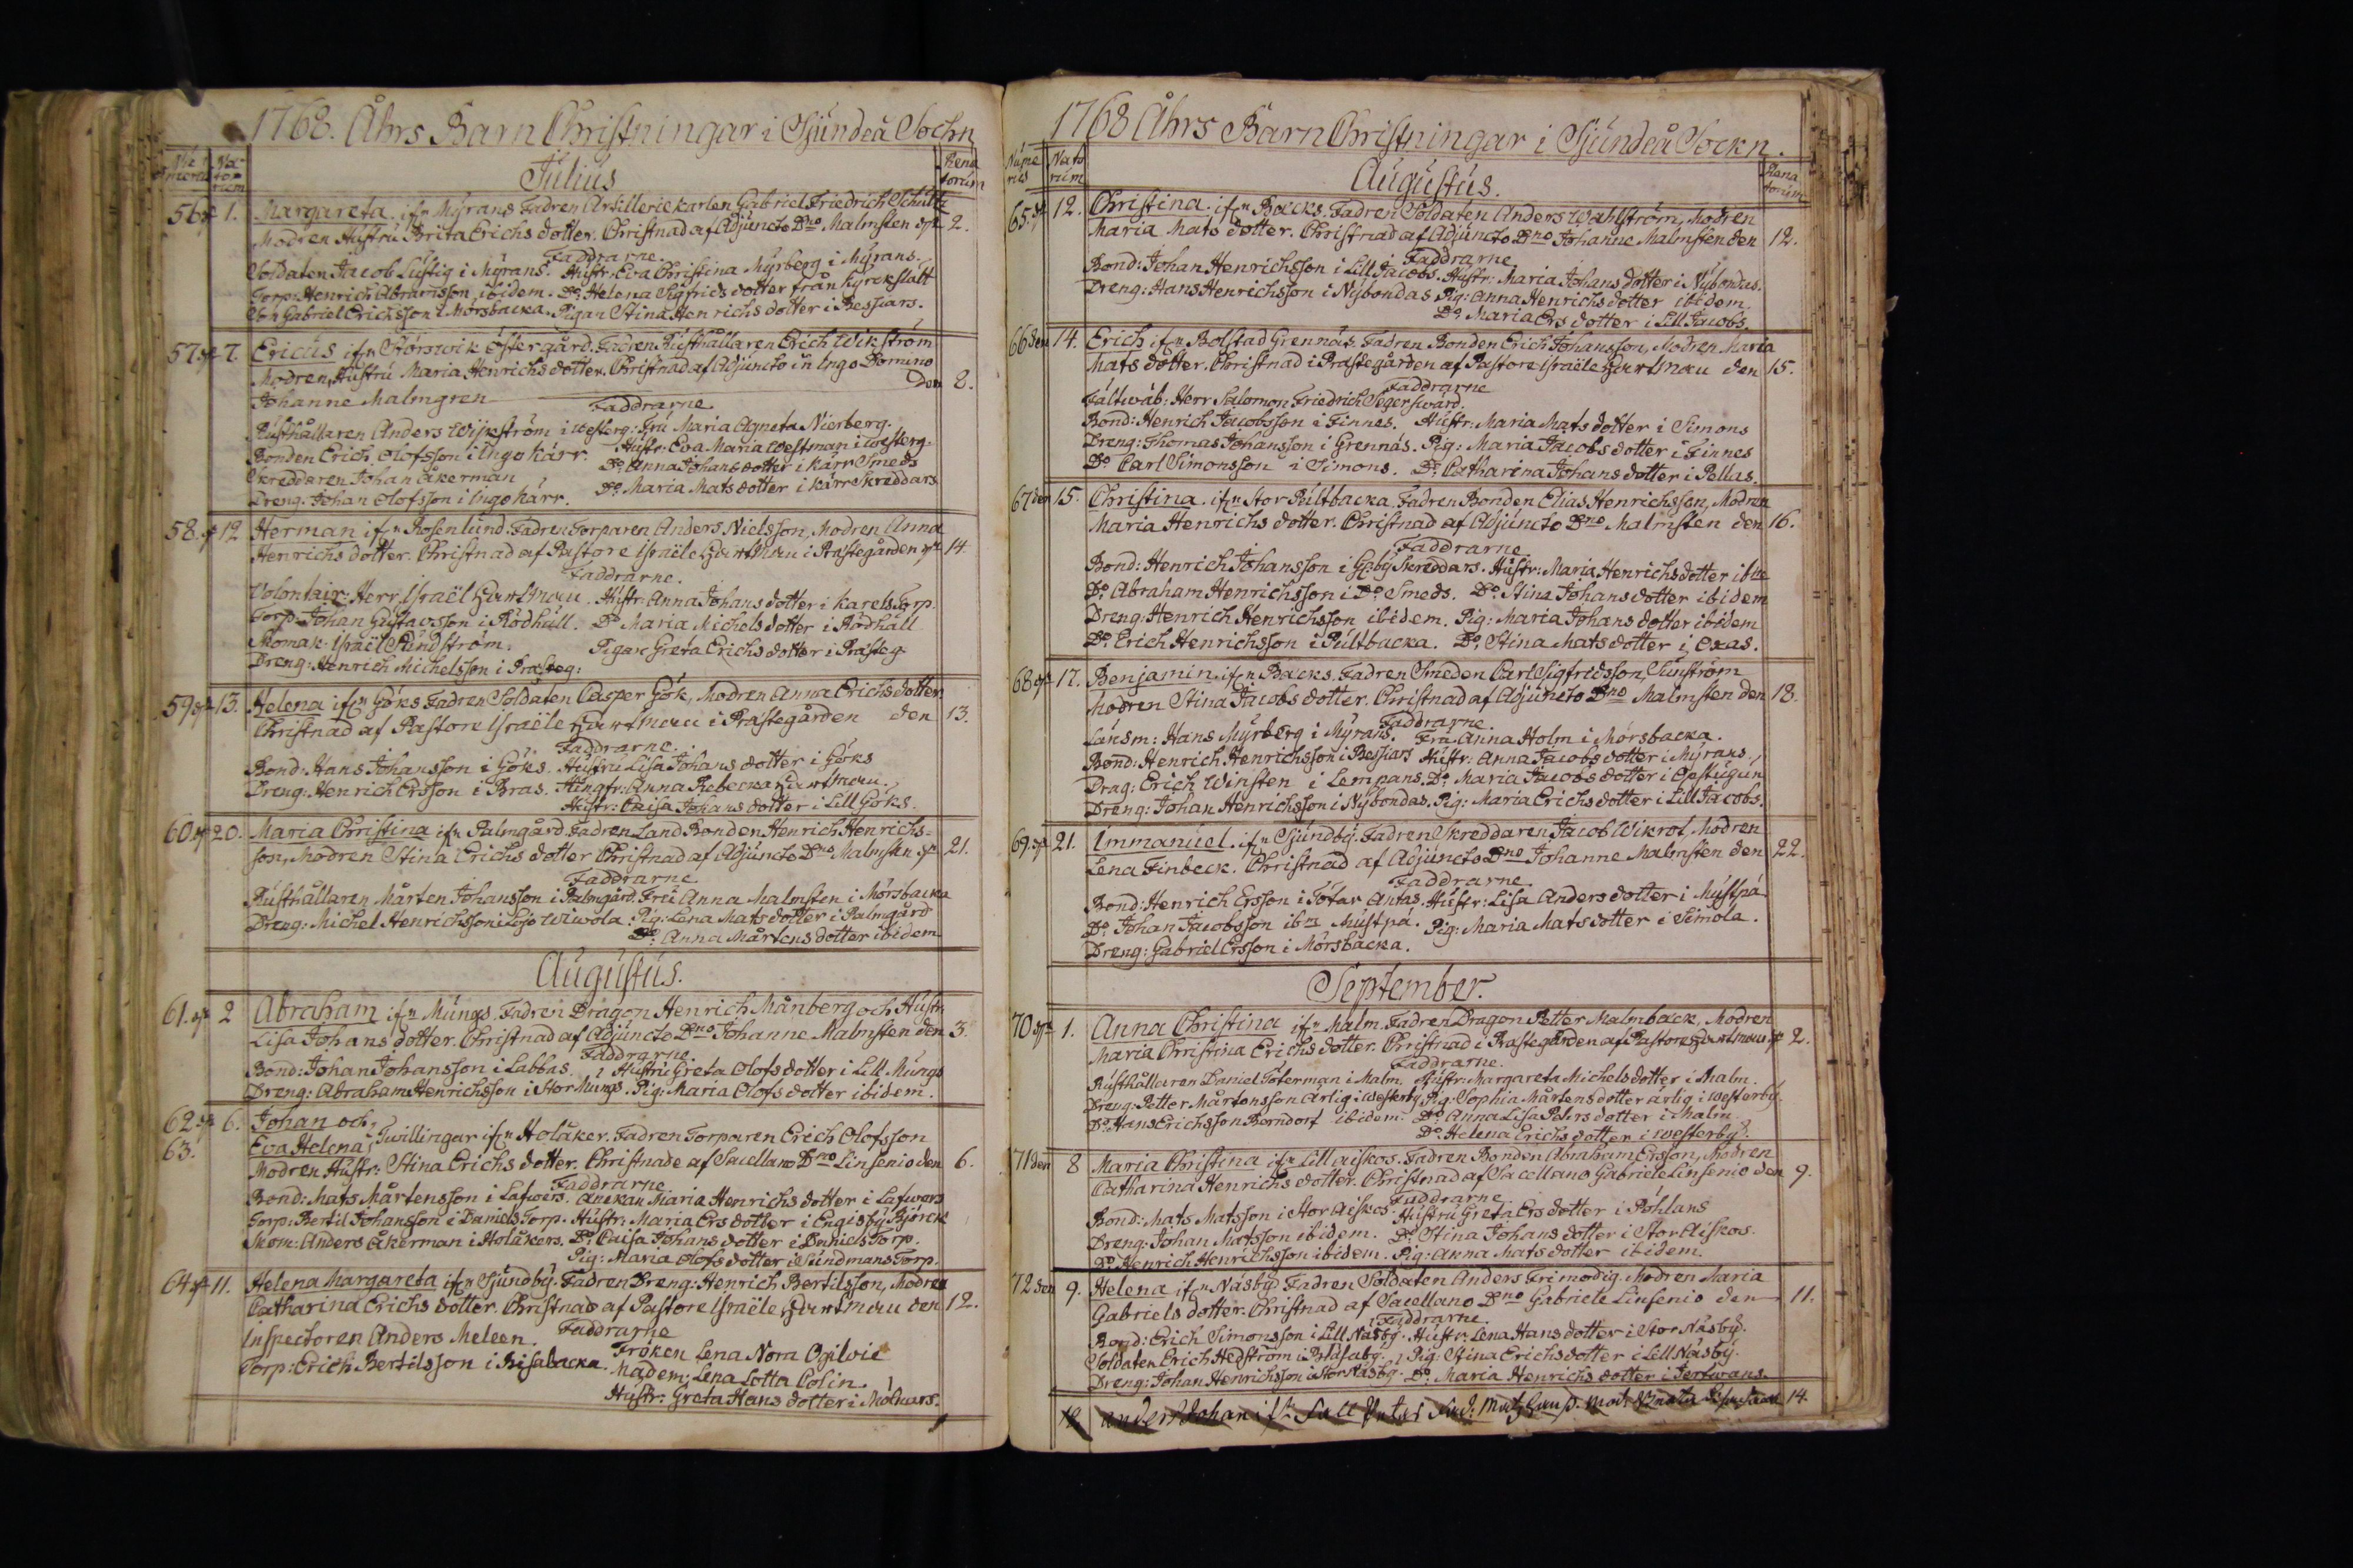 1768. Åhrs Barn Christningar i Sjundeå Sochn
Numeru Natorum Renatorum
Julius
56 1. Margareta. ifrn Myrans Fadren Artillerie karlen Gabriel Friedrich Schultz
Modren Hustru Brita Erichs dotter. Christnad af Adjuncto Dno Malmsten 2.
Faddrarne.
Soldaten Jacob Lustig i Myrans. Hustr: Eva Christina Myrberg i Myrans.
Torp: Henrich Abramsson ibidem. Do Helena Sigfrids dotter från Kyrckslätt
Gabriel Erichsson i Morsbacka. Pigan Stina Henrichs dotter i Bessiars.
57 7. Ericus ifrn Störswik Östergård. Fadren Rusthållaren Erich Wikström
Modren, Hustru Maria Henrichs dotter. Christnad af Adjuncto in Ingo Domino
Johanne Malmgren Den 8.
Faddrarne
Rusthållaren Anders Wijkström i westerg: Fru Maria Agneta Nierberg.
Bonden Erich Olofsson i Ingo kärr. Hustr: Eva Maria Westman i westerg.
Skreddaren Johan Åkerman Do Anna Johans dotter i kärr Smeds
Dreng. Johan Olofsson i Ingo kärr. Do Maria Mats dotter i kärr Skreddars
58. 12 Herman ifrn Rosenlund. Fadren Torparen Anders Nielsson, Modren Anna
Henrichs dotter. Christnad af Pastore Israële Hartman i Prästegården 14.
Faddrarne.
Volontair: Herr Israël Hartman. Hustr: Anna Johans dotter i karels Torp.
Torp: Johan Gustavsson i Rödhäll. Do Maria Michels dotter i Rödhäll
Skomak: Israël Sundström. Pigan Greta Erichs dotter i Prästeg.
Dreng: Henrich Michelsson i Prasteg:
59 13. Helena ifrn Göks Fadren Soldaten Casper Gök, Modren Anna Erichs dotter
Christnad af Pastore Israële Hartman i Prastegården den 13.
Faddrarne.
Bond: Hans Johansson i Göks. Hustru Lisa Johans dotter i Göks
Dreng: Henrich Ersson i Bras. Jungfr: Anna Rebecka Hartman.
Hustr: Caisa Johans dotter i Lill Göks.
60 20. Maria Christina ifrn Palmgård. Fadren Land Bonden Henrich Henrichs-
son, Modren Stina Erichs dotter Christnad af Adjuncto Dno Malmsten 21.
Faddrarne
Rusthållaren Mårten Johansson i Palmgård. Fru Anna Malmsten i Mörsbacka
Dreng: Michel Henrichsson i Lojo Wiwola. Pig: Lena Mats dotter i Palmgård
Do Anna Mårtens dotter ibidem
Augustus.
61. 2 Abraham ifrn Mungs. Fadren Dragon Henrich Månberg och Hustr
Lisa Johans dotter. Christnad af Adjuncto Dno Johanne Malmsten den 3.
Faddrarne
Bond: Johan Johansson i Labbas. Hustru Greta Olofs dotter i Lill Mungs
Dreng: Abraham Henrichsson i Stor Mungs. Pig: Maria Olofs dotter ibidem.
62 6. Johan och
63. Eva Helena Twillingar ifrn Holåker. Fadren Torparen Erich Olofsson
Modren Hustr: Stina Erichs dotter. Christnade af Sacellano Dno Linsenio den 6.
Faddrarne
Bond: Mats Mårtensson i Lafwers. Anckan Maria Henrichs dotter i Lafwers
Torp: Bertil Johansson i Daniels Torp. Hustr: Maria Ers dotter i Engisby Björck
Skom: Anders Åkerman i Holåkers. Do Caisa Johans dotter i Daniels Torp.
Pig: Maria Olofs dotter i Sundmans Torp.
64 11. Helena Margareta ifrn Sjundby. Fadren Dreng: Henrich Bertilsson, Modren
Catharina Erichs dotter. Christnad af Pastore Israële Hartman den 12.
Faddrarne
Inspectoren Anders Meleen. Fröken Lena Nora Ogilvie
Torp: Erich Bertilsson i Risabacka Madem: Lena Lotta Colin.
Hustr: Greta Hans dotter i Molnars.
1768 Åhrs Barn Christningar i Sjundeå Sockn.
Numerus Natorum Renatorum
Augustus.
65. 12. Christina. ifrn Backs. Fadren Soldaten Anders Wahlström, Modren
Maria Mats dotter. Christnad af Adjuncto Dno Johanne Malmsten den 12.
Faddrarne
Bond: Johan Henrichsson i Lill Jacobs. Hustr: Maria Johans dotter i Nybondas.
Dreng: Hans Henrichsson i Nybondas Pig: Anna Henrichs dotter ibidem.
Do Maria Ers dotter i Lill Jacobs.
66 den 14. Erich ifrn Bolstad Grennäs. Fadren Bonden Erich Johansson, Modren Maria
Mats dotter. Christnad i Prastegården af Pastore Israële Hartman den 15.
Faddrarne
Fältwäb: Herr Salomon Friedrich Segerswärd.
Bond: Henrich Jacobsson i Finnes. Hustr: Maria Mats dotter i Simons
Dreng: Thomas Johansson i Grennäs. Pig: Maria Jacobs dotter i Finnes
Do Carl Simonsson i Simons. Do Catharina Johans dotter i Pellas.
67 den 15. Christina. ifrn Stor Pultbacka Fadren Bonden Elias Henrichsson, Modren
Maria Henrichs dotter. Christnad af Adjuncto Dno Malmsten den 16.
Faddrarne
Bond: Henrich Johansson i Gåby Skreddars. Hustr: Maria Henrichs dotter ibm
Do Abraham Henrichsson i Do Smeds. Do Stina Johans dotter ibidem
Dreng: Henrich Henrichsson ibidem. Pig: Maria Johans dotter ibidem
Do Erich Henrichsson i Pultbacka. Do Stina Mats dotter i Oxas.
68 17. Benjamin ifrn Backs. Fadren Smeden Carl Sigfridsson Sunström
Modren Stina Jacobs dotter. Christnad af Adjuncto Dno Malmsten den 18.
Faddrarne
Länsm: Hans Myrberg i Myrans. Fru Anna Holm i Mörsbacka.
Bond: Henrich Henrichsson i Bessiars Hustr: Anna Jacobs dotter i Myrans.
Drag: Erich Winsten i Lempans. Do Maria Jacobs dotter i Gestugun
Dreng: Johan Henrichsson i Nybondas. Pig: Maria Erichs dotter i Lill Jacobs.
69. 21. Immanuel. ifrn Sjundby. Fadren Skreddaren Jacob Wikrot, Modren
Lena Finbeck. Christnad af Adjuncto Dno Johanne Malmsten den 22.
Faddrarne
Bond: Henrich Ersson i Tötar Antas. Hustr: Lisa Anders dotter i Mustpä
Do Johan Jacobsson ibm Mustpä. Pig: Maria Mats dotter i Simola.
Dreng: Gabriel Ersson i Mörsbacka.
September.
70 1. Anna Christina ifrn Malm. Fadren Dragon Petter Malmback, Modren
Maria Christina Erichs dotter. Christnad i Prastegården af Pastore Hartman 2.
Faddrarne.
Rusthållaren Daniel Töterman i Malm. Hustr: Margareta Michels dotter i Malm.
Dreng: Petter Mårtensson Ärlig i Westerby Pig: Sophia Mårtens dotter ärlig i westerby.
Do Hans Erichsson Borndorf ibidem. Do Anna Lisa Pehrs dotter i Malm
Do Helena Erichs dotter i westerby.
71 den 8 Maria Christina ifrn Lill Aiskos. Fadren Bonden Abraham Ersson, Modren
Catharina Henrichs dotter. Christnad af Sacellano Gabriele Linsenio den 9.
Faddrarne
Bond: Mats Matsson i Stor Aiskos Hustru Greta Ers dotter i Pohlans
Dreng: Johan Matsson ibidem. Do Stina Johans dotter i Stor Aiskos.
Do Henrich Henrichsson ibidem. Pig: Anna Mats dotter ibidem.
72 den 9. Helena ifrn Näsby Fadren Soldaten Anders Frimodig. Modren Maria
Gabriels dotter. Christnad af Sacellano Dno Gabriele Linsenio den 11.
Faddrarne.
Bond: Erich Simonsson i Lill Näsby. Hustr: Lena Hans dotter i Stor Näsby.
Soldaten Erich Hedström i Blåsabg. Pig: Stina Erichs dotter i Lill Näsby.
Dreng: Johan Henrichsson i Stor Näsby. Do Maria Henrichs dotter i Jertwans.
Anders Johan ifrn 14.